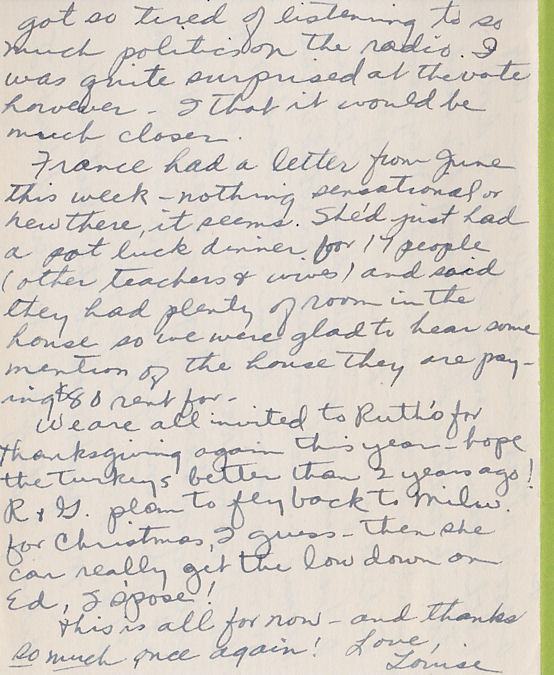 got so tired of listening to so
much politics on the radio. I
was quite surprised at the vote
however - I that it would be
much closer.
France had a letter from June
this week - nothing sensational or
new there, it seems. She'd just had
a pot luck dinner for 19 people
(other teachers & wives) and said
they had plenty of room in the
house so we were glad to hear some
mention of the house they are pay-
ing $80 rent for -
We are all invited to Ruth's for
Thanksgiving again this year - hope
the turkeys better than 2 years ago!
R & G. plan to fly back to Milw.
for Christmas, I guess - then she
can really get the low down on
Ed, I s'pose!
This is all for now - and thanks
so much once again! Love,
Louise